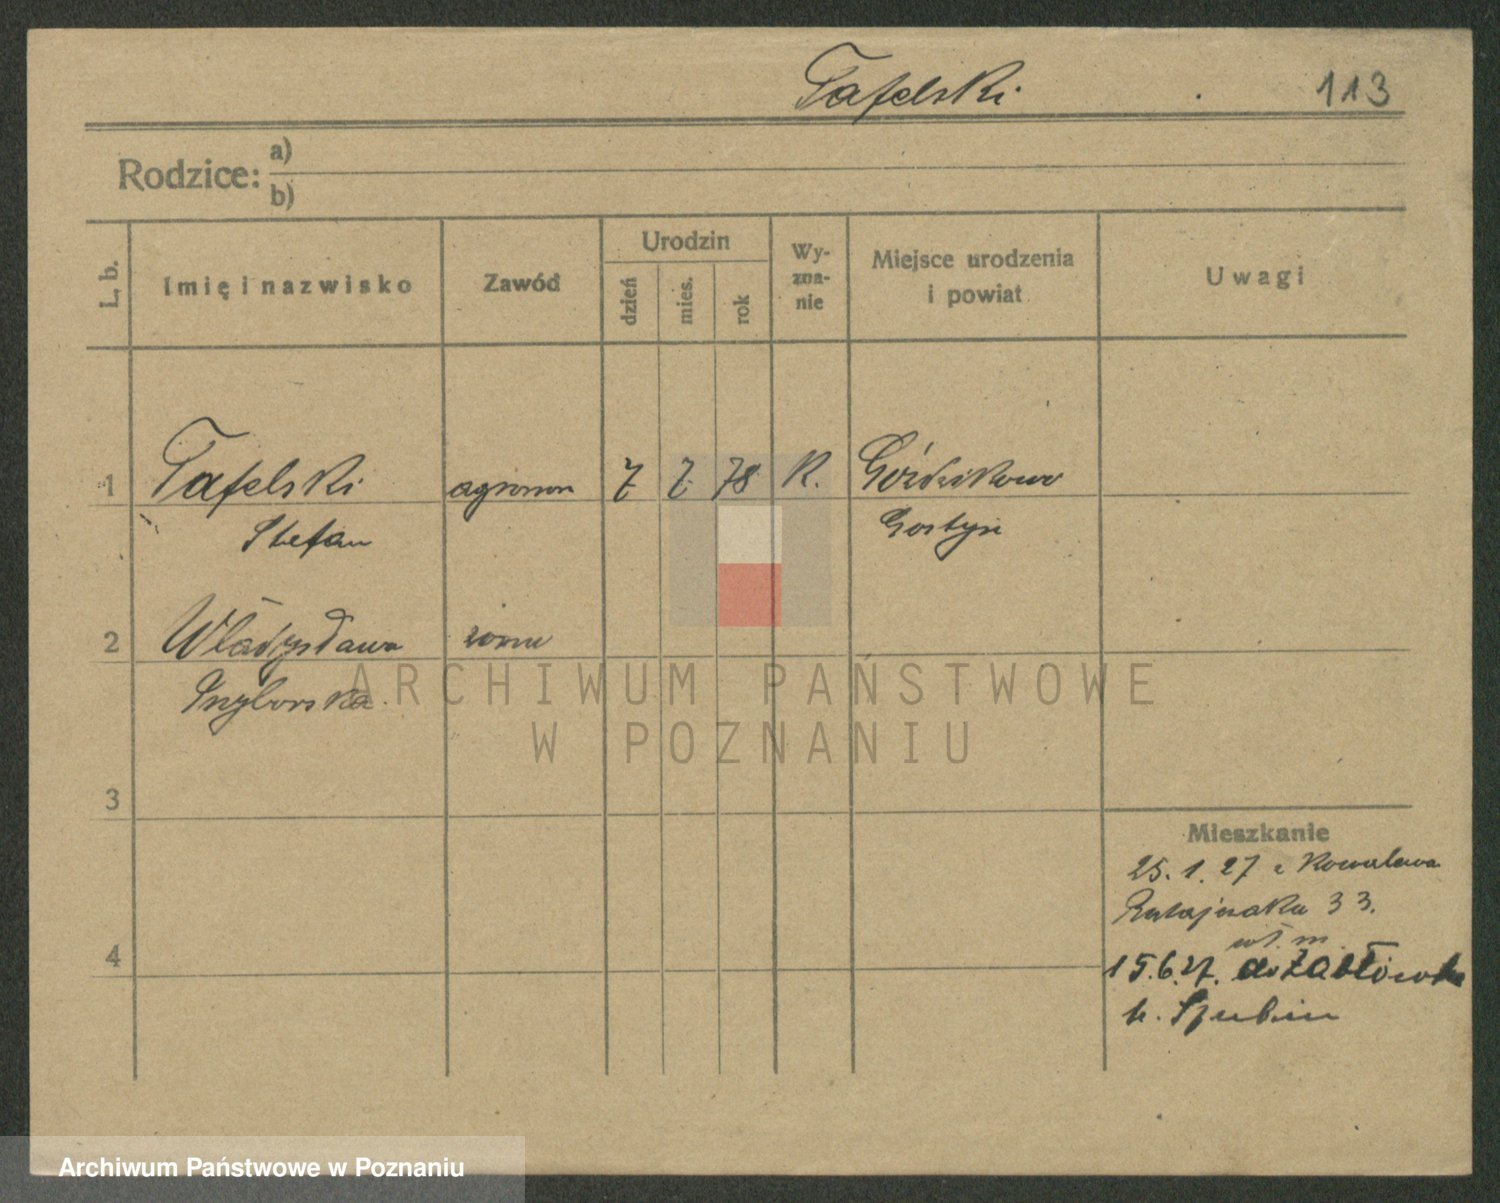 Tafelski 113
Rodzice: a)
b)
L. b. Imię i nazwisko Zawód Urodzin dzień mies. rok Wy-zna-nie Miejsce urodzenia i powiat Uwagi
1 Tafelski agronom 7 7 78 R.
Stefan Gostyń
2 Władysława żona
3
Mieszkanie
25. 1. 27 z Kowalewa
Ratajczaka 33.
4
15.6.27. do
k. Szubin
ARCHIWUM PAŃSTWOWE
W POZNANIU
Archiwum Państwowe w Poznaniu